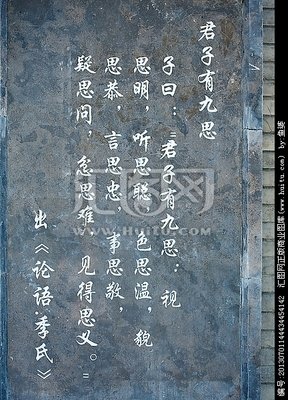 君子有九思
子曰："君子有九思：视
思明，听思聪，色思温，貌
思恭，言思忠，事思敬，
疑思问，忿思难，见得思义。"
出《论语·季氏》
汇图网
www.huitu.com
汇图网正版商业图库(www.huitu.com) by:鱼妖
编号:20130701144434454142